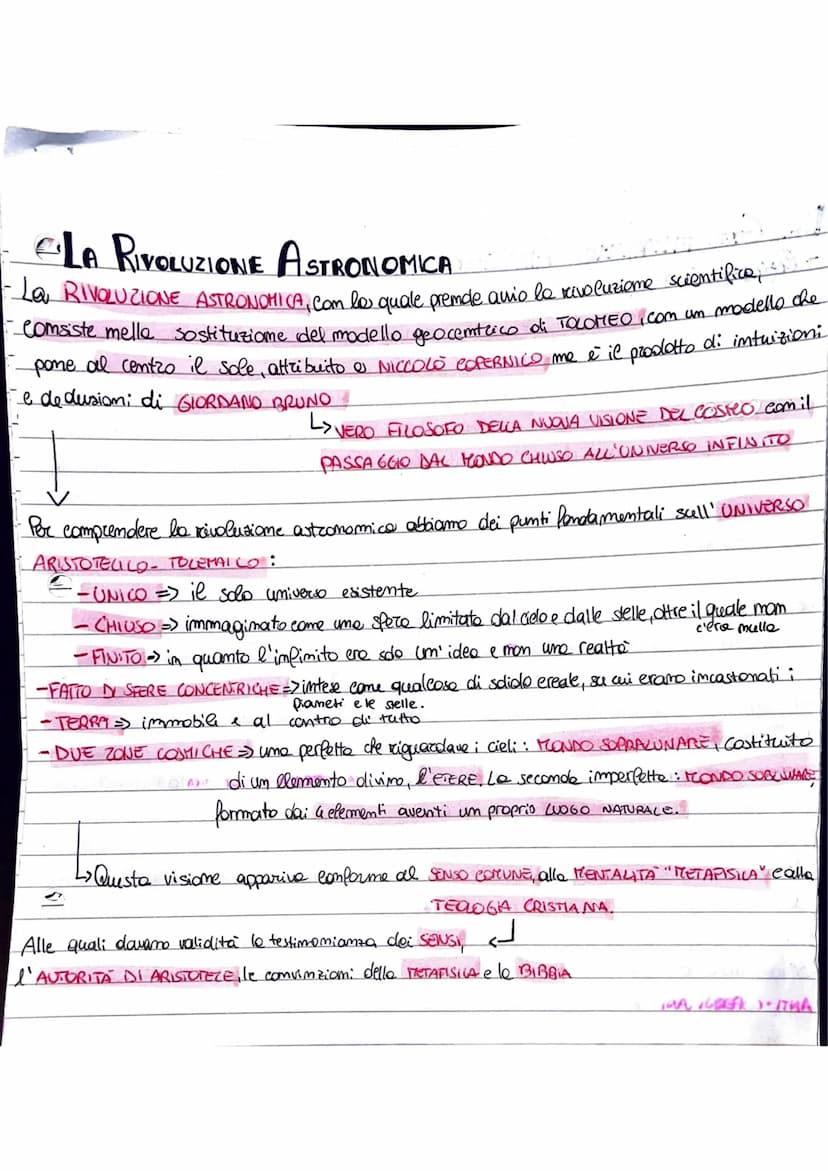 LA RIVOLUZIONE ASTRONOMICA
La RIVOLUZIONE ASTRONOMICA, con la quale prende avvio la rivoluzione scientifica,
consiste nella sostituzione del modello geocentrico di TOLOMEO, con un modello che
pone al centro il sole, attribuito a NICCOLÒ COPERNICO, ma è il prodotto di intuizioni
e deduzioni di GIORDANO BRUNO
↳ VERO FILOSOFO DELLA NUOVA VISIONE DEL COSMO con il
PASSAGGIO DAL MONDO CHIUSO ALL'UNIVERSO INFINITO
Per comprendere la rivoluzione astronomica abbiamo dei punti fondamentali sull'UNIVERSO
ARISTOTELICO-TOLEMAICO:
-UNICO => il solo universo esistente
-CHIUSO => immaginato come una sfera limitata dal cielo e dalle stelle, oltre il quale non
c'era nulla
-FINITO => in quanto l'infinito era solo un'idea e non una realtà
-FATTO DI SFERE CONCENTRICHE => intese come qualcosa di solido e reale, su cui erano incastonati i
pianeti e le stelle.
-TERRA => immobile e al centro di tutto
-DUE ZONE COSMICHE => una perfetta che riguardava i cieli: MONDO SOPRALUNARE, costituito
di un elemento divino, l'ETERE. La seconda imperfetta: MONDO SUBLUNARE,
formato dai 4 elementi aventi un proprio LUOGO NATURALE.
↳ Questa visione appariva conforme al SENSO COMUNE, alla MENTALITÀ "METAFISICA" e alla
TEOLOGIA CRISTIANA.
Alle quali davano validità la testimonianza dei SENSI,
l'AUTORITÀ DI ARISTOTELE, le convinzioni della METAFISICA e la BIBBIA